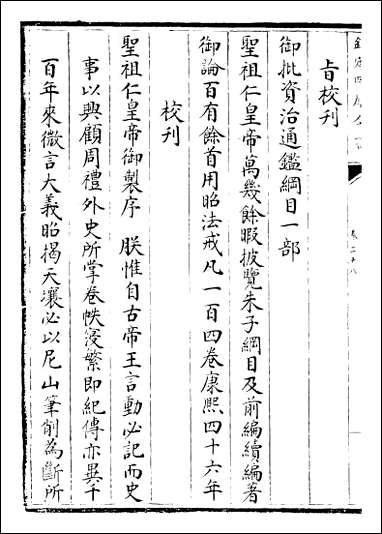 欽定四庫全書
卷二十八
旨校刊
御批資治通鑑綱目一部
聖祖仁皇帝萬幾餘暇披覽朱子綱目及前編續編著
御論百有餘首用昭法戒凡一百四卷康熙四十六年
校刊
聖祖仁皇帝御製序 朕惟自古帝王言動必記而史
事以興顧周禮外史所掌卷帙寖繁即紀傳亦異千
百年來微言大義昭揭天壤必以尼山筆削為斷所